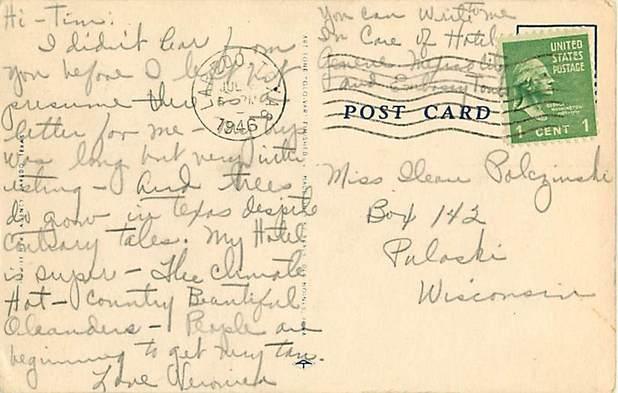 Hi - Tim:
I didn't hear from
you before I left but
presume there is a
letter for me - my trip
was long but very inter-
esting - And trees
do grow in Texas despite
contrary tales. My Hotel
is super - The climate
Hot - Country Beautiful
Oleanders - People are
beginning to get very tan.
Love Veronica
You can write to me
In Care of Hotel
Geneve Mexico City
LAREDO
JUL
1946
POST CARD
UNITED
STATES
POSTAGE
1 CENT 1
Miss Ileane Polczinski
Box 142
Pulaski
Wisconsin